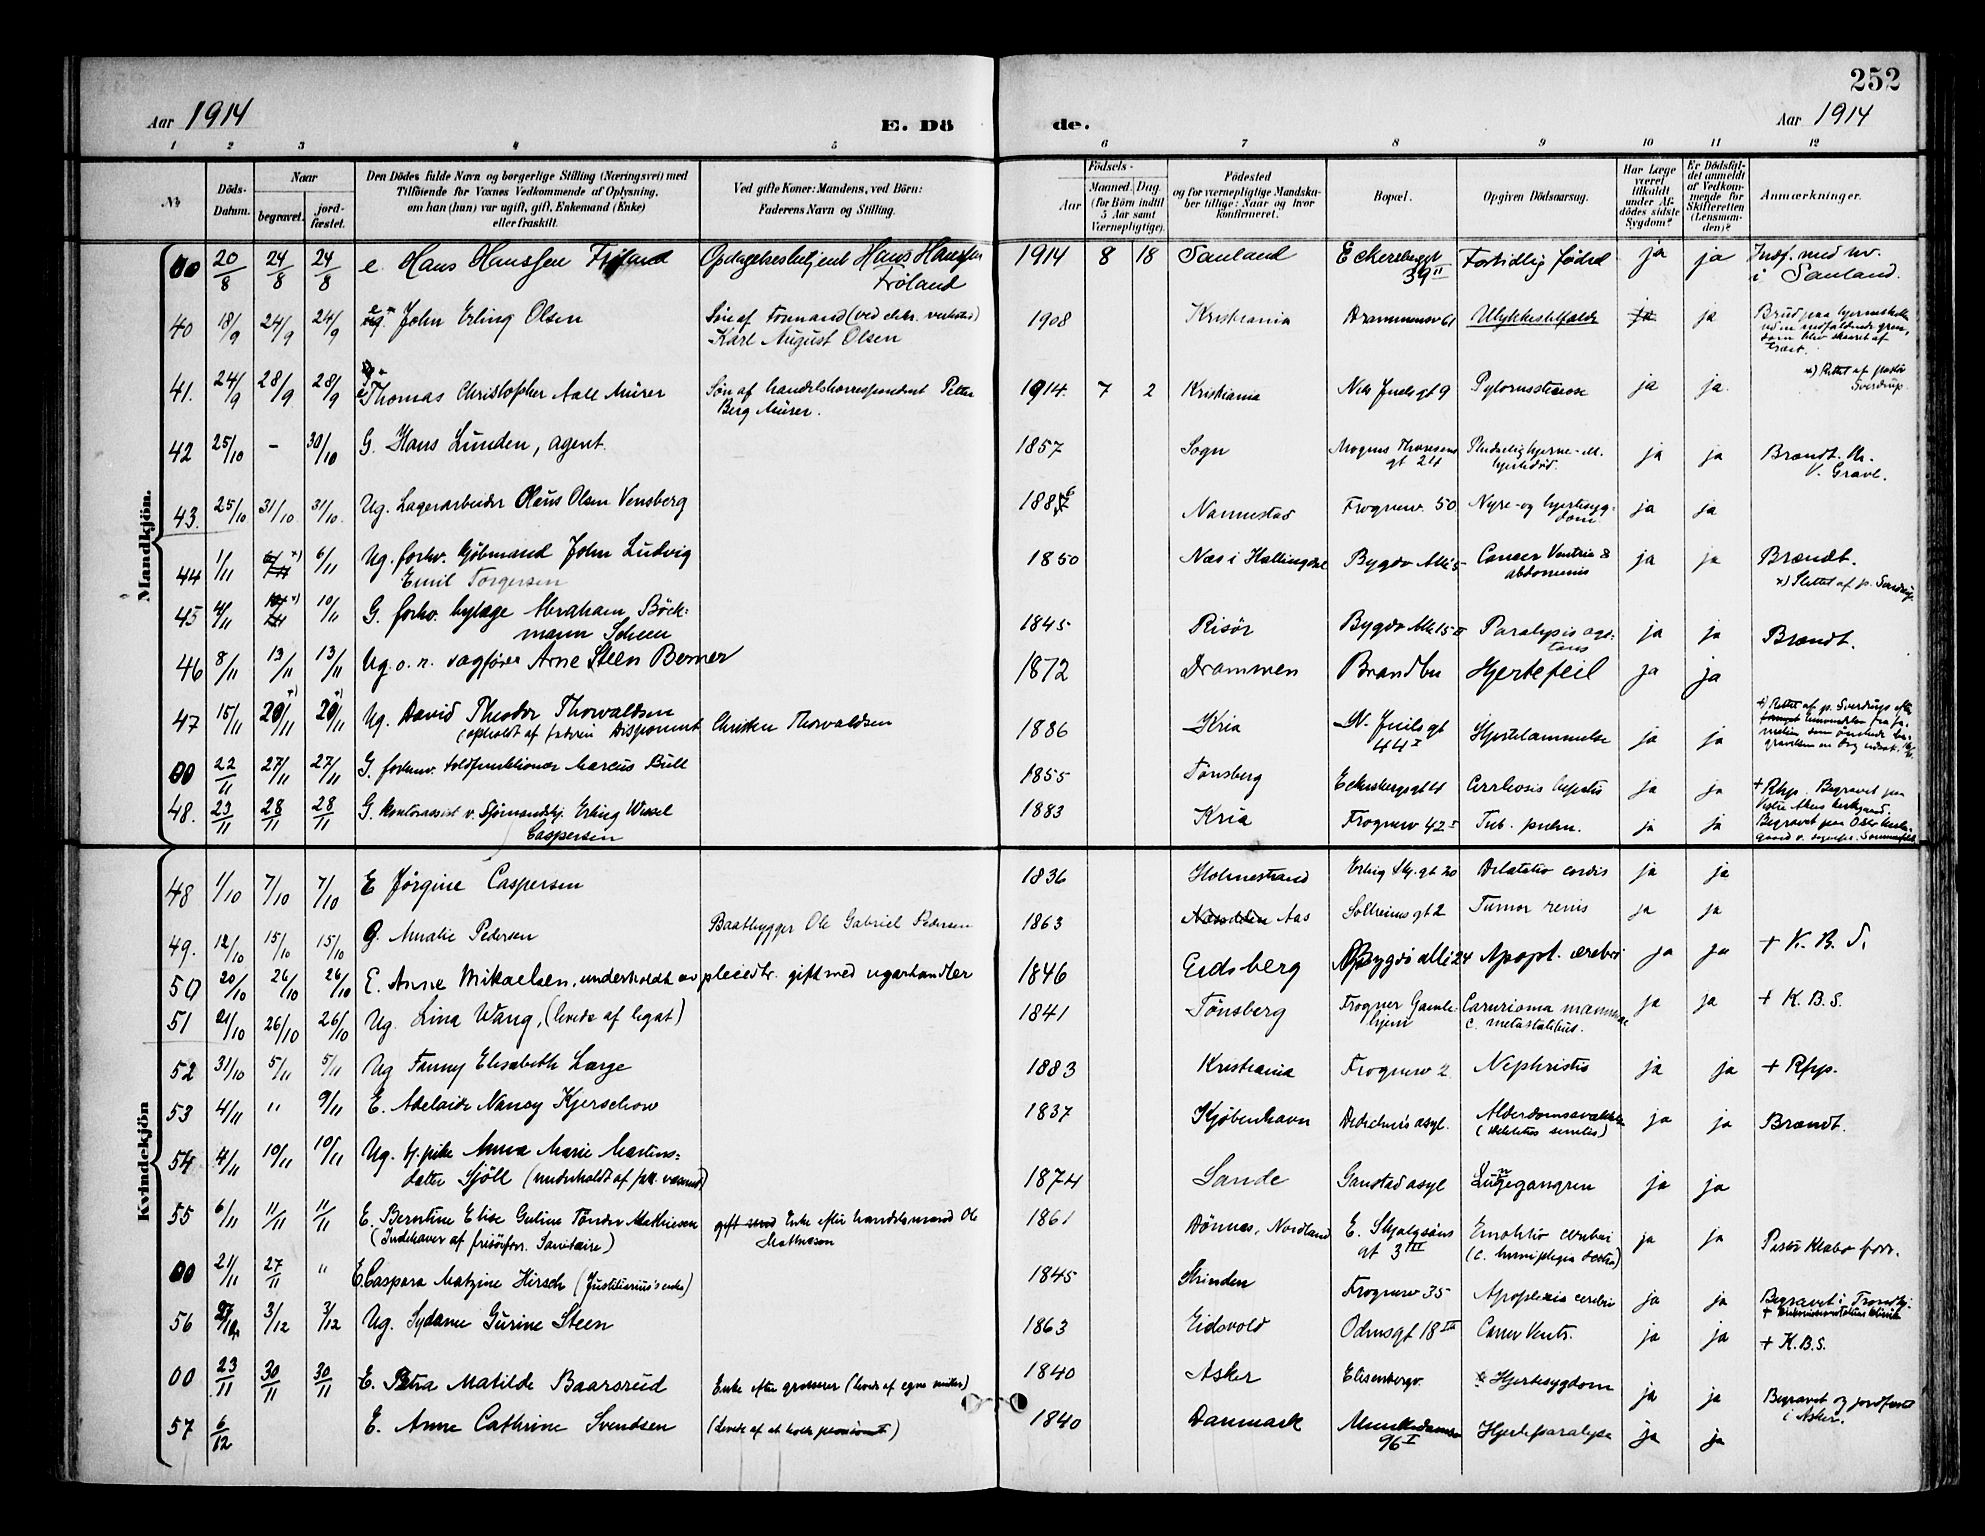 252
Aar 1914
E. Dö de.
Aar 1914
1 2 3 4 5 6 7 8 9 10 11 12
№
Döds-Datum.
Naar
begravet.
jord-fæstet.
Den Dödes fulde Navn og borgerlige Stilling (Næringsvei) med
Tilföiende for Voxnes Vedkommende af Oplysning,
om han (hun) var ugift, gift, Enkemand (Enke)
eller fraskilt.
Ved gifte Koner: Mandens, ved Börn:
Faderens Navn og Stilling.
Födsels-
Aar
Maaned. (for Börn indtil 5 Aar samt Værnepligtige).
Dag.
Födested
og for værnepligtige Mandskaber tillige: Naar og hvor konfirmeret.
Bopæl.
Opgiven Dödsaarsag.
Har Læge været tilkaldt under Afdödes sidste Sygdom?
Er Dödsfaldet anmeldt af Vedkommende for Skifteretten (Lensmanden)?
Anmærkninger.
Mandkjön.
00 20/8 24/8 24/8 e. Hans Hanssen Fröland Opdagelsesbetjent Hans Hanssen Fröland 1914 8 18 Sauland Eckersbergsgt 39 II Fortidlig födsel ja ja i Sauland.
40 18/9 24/9 24/9 John Erling Olsen Søn af Formand (ved elektr. verksted) Karl August Olsen 1908 Kristiania Drammensv 61 Ulykkestilfælde ja ja
41. 24/9 28/9 28/9 Thomas Christopher Aall Mürer Søn af handelskorrespondent Petter Berg Mürer. 1914. 7 2 Kristiania Niels Juels gt 9 Pylorusstenose ja ja. x) Rettet af pastor Sverdrup.
42 25/10 - 30/10 G. Hans Lunden, agent. 1857 Sogn Mogens Thoresens gt 24 ja ja Brændt. V. Gravl.
43. 25/10 31/10. 31/10. Ug. Lagerarbeider Olaus Olsen Vensberg 1886 Nannestad Frognerv. 50 Nyre- og hjertesygdom ja ja
44 1/11 6/11 6/11 Ug. forhv. Gjöbmand John Ludvig Emil Torgersen 1850 Næs i Hallingdal Bygdø Alle 5 Cancer Ventric & abdominis ja ja Brændt. x) Rettet af p. Sverdrup.
45 4/11 10/11 G. forhv. bylæge Abraham Böckmann Scheen 1845 Risör Bygdø Alle 15 II Paralysis agitans ja ja Brændt.
46 8/11 13/11 13/11 Ug. o. r. sagfører Arne Steen Berner 1872 Drammen Brandbu Hjertefeil ja ja
47 15/11 20/11 20/11 Ug. David Theodor Thorvaldsen (opholdt af faderen Disponent Christen Thorvaldsen 1886 Kria N. Juels gt 44 I Hjertelammelse ja ja x) Rettet af p. Sverdrup
00 22/11 27/11 27/11 G. forhenv. toldfunktionær Marcus Bull 1855 Tønsberg Eckersbergsgt 4 Cirrhosis hepatis ja ja + Rhp. Begravet paa Vestre Akers kirkegaard.
48. 23/11 28/11 28/11 G. kontorassist v. Sjömandsk. Erling Wessel Caspersen 1883 Kria Frognerv 42 I Tub. pulm. ja ja Begravet paa Oslo kirkegaard v. sogneprest Sommerfelt
Kvindekjön
48 1/10 7/10 7/10 E Jörgine Caspersen 1836 Holmestrand Erling Skj. gt 20 Dilatatio cordis ja ja
49. 12/10 15/10 15/10 G. Amalie Pedersen Baatbygger Ole Gabriel Pedersen 1863 Aas Solheims gt 2 Tumor renis ja ja + K. B. S.
50 20/10 26/10 26/10 E. Anne Mikaelsen, underholdt av pleiedtr. gift med cigarhandler 1846 Eidsberg Bygdö alle 24 Apopl. cerebri ja ja
51 21/10 26/10 26/10 Ug. Lina Wang, (levede af legat) 1841 Tönsberg Frogner Gamlehjem Carcinoma mammae c. metastatibus. ja ja + K. B. S.
52 31/10 5/11 5/11 Ug Fanny Elisabeth Large 1883 Kristiania Frognerv 2. Nephristis ja ja + Rhp.
53 4/11 " 9/11 E. Adelaide Nancy Kjerschow 1837 Kjøbenhavn Dedichens asyl. Alderdomssvækkelse (Delirius senilis) ja ja Brændt.
54 4/11 10/11 10/11 Ug. tj. pike Anna Marie Martinsdatter Sjöll (underholdt af ) 1874 Sande Gaustad asyl Lungegangren ja ja
55 6/11 11/11 11/11 E. Berntine Elise Guline Tønder Mathiesen (Indehaver af frisørforr. Sanitaire) gift med Enke efter handelsmand Ole Mathieson 1861 Dønnæs, Nordland E. Skjalgsøns gt 3 III Embolio cerebri (c. hemiplegia dextra) ja ja Pastor Klabo forr.
00 21/11 27/11 " E. Caspara Matzine Hirsch (Justitiarius's enke) 1845 Strinden Frognerv 35 Apoplexia cerebri ja ja Begravet i Trondhj.
56 3/12 3/12 Ug. Sydame Gurine Steen 1863 Eidsvold Odins gt 18 III Cancer Ventr. ja ja + K. B. S.
00 23/11 30/11 30/11 E. Petra Matilde Baarsrud Enke efter grosserer (lever af egne midler) 1840 Asker Elisenbergv. Hjertesygdom ja ja Begravet og jordfæstet i Asker.
57 6/12 E. Anne Cathrine Svendsen (Levede af at holde pensionat) 1840 Danmark Munkedamsv 96 I Hjerteparalyse ja ja